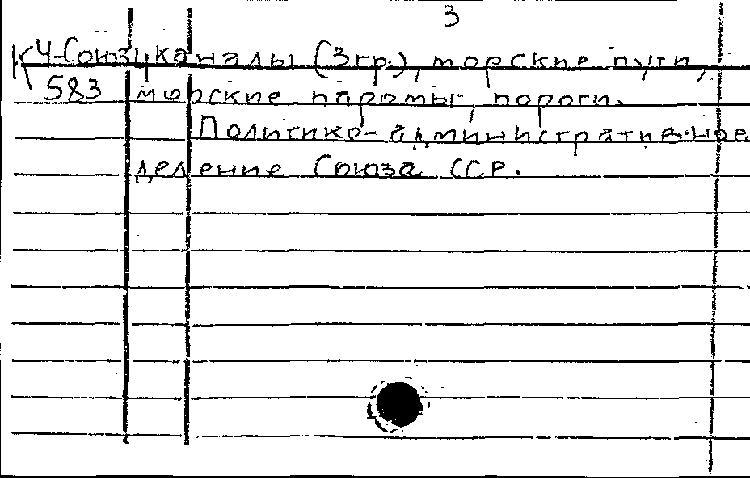 3
К4-Союз каналы (3гр.), морские пути,
583 морские паромы, пороги.
Политико-административное
деление Союза ССР.